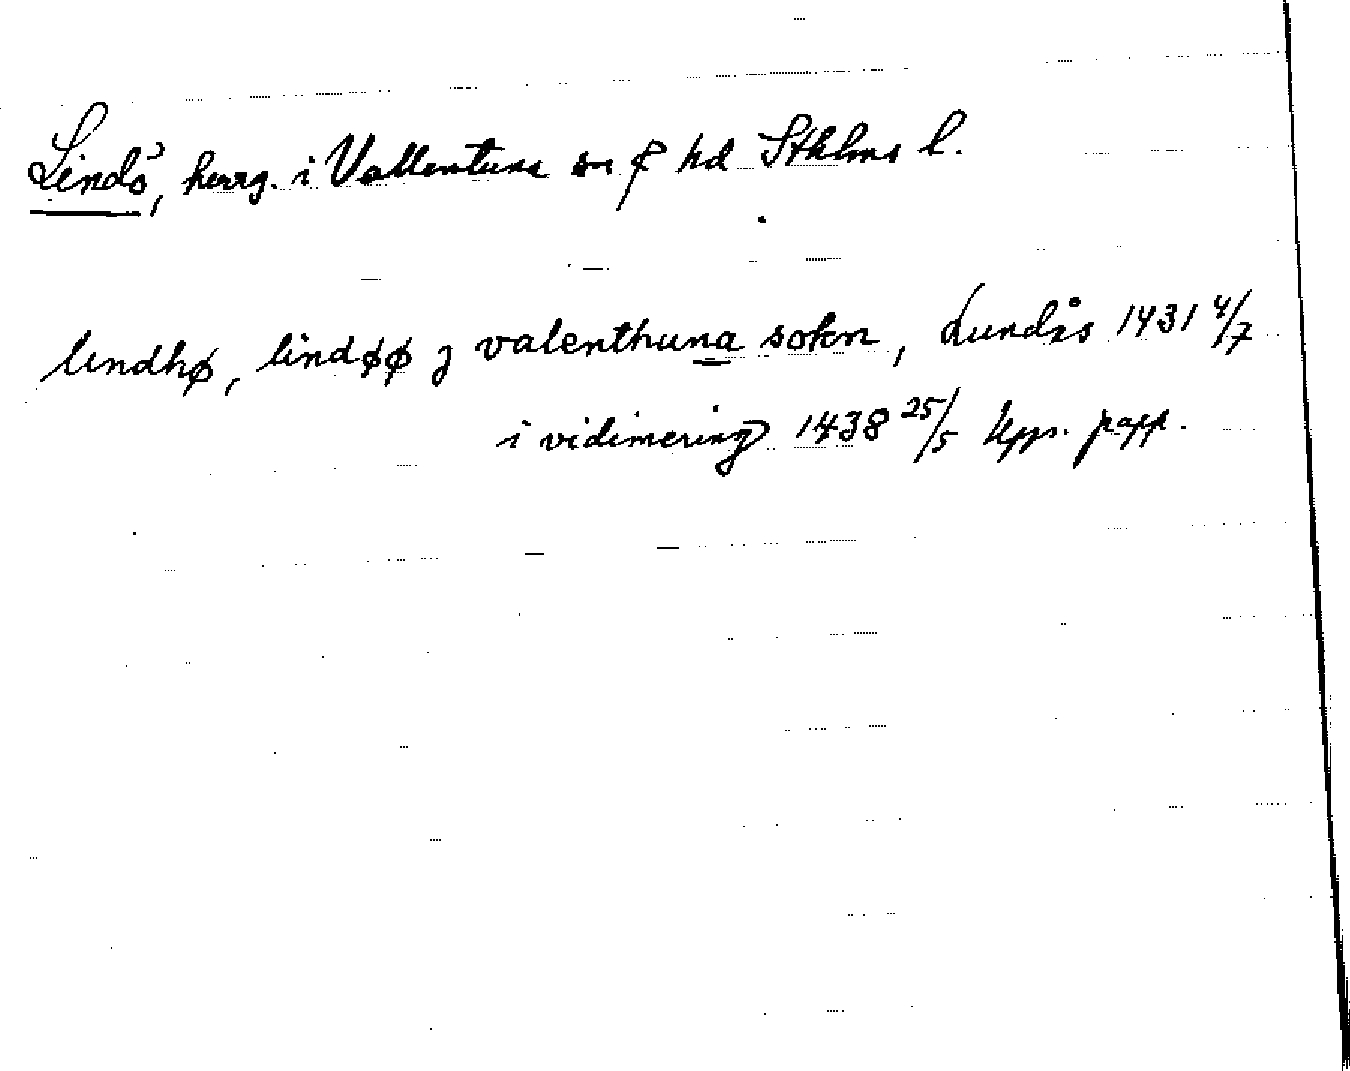 Lindö, herrg. i Vallentuna sn ɟ hd Sthlms l.
lindhø, lindøø j valenthuna sokn, Lundås 1431 4/7
i vidimering 1438 25/5 Upps. papp.